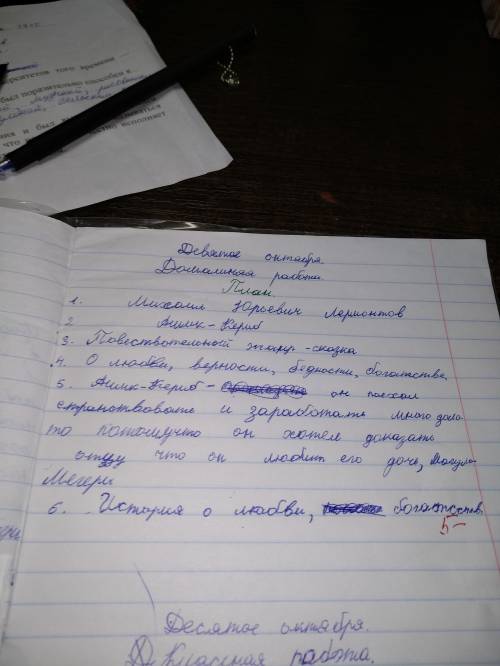 ерситетов того времени
был поразительно способен к
мудрый, рисовать
ния и был
что
исполняет
Девятое октября.
Домашняя работа.
План.
1. Михаил Юрьевич Лермонтов
2 Ашик-Кериб
3. Повествотельный жанр -сказка
4. О любви, верности, бедности, богатстве.
5. Ашик-Кериб- он поехал
странствовать и заработать много золо
то потомучто он хотел доказать
отцу что он любит его дочь, Магуль
Мегери
6. История о любви, богатств.
5-
Десятое октября.
Классная работа.